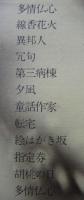 多情仏心
線香花火
異邦人
冗句
第三病棟
夕凪
童話作家
転宅
絵はがき坂
指定券
胡桃の日
多情仏心